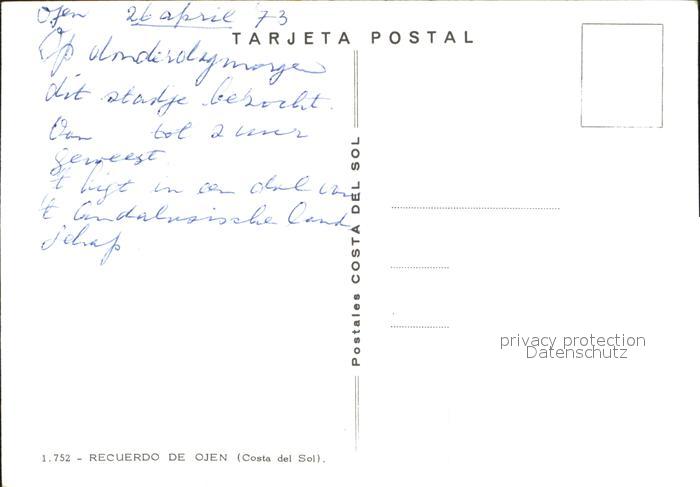 Ojen 26 april '73
TARJETA POSTAL
Op donderdagmorgen
dit stadje bezocht.
Van tot 2 uur
geweest.
't ligt in een dal van
't Andalusische land
schap
Postales COSTA DEL SOL
privacy protection
Datenschutz
1.752 - RECUERDO DE OJEN (Costa del Sol).